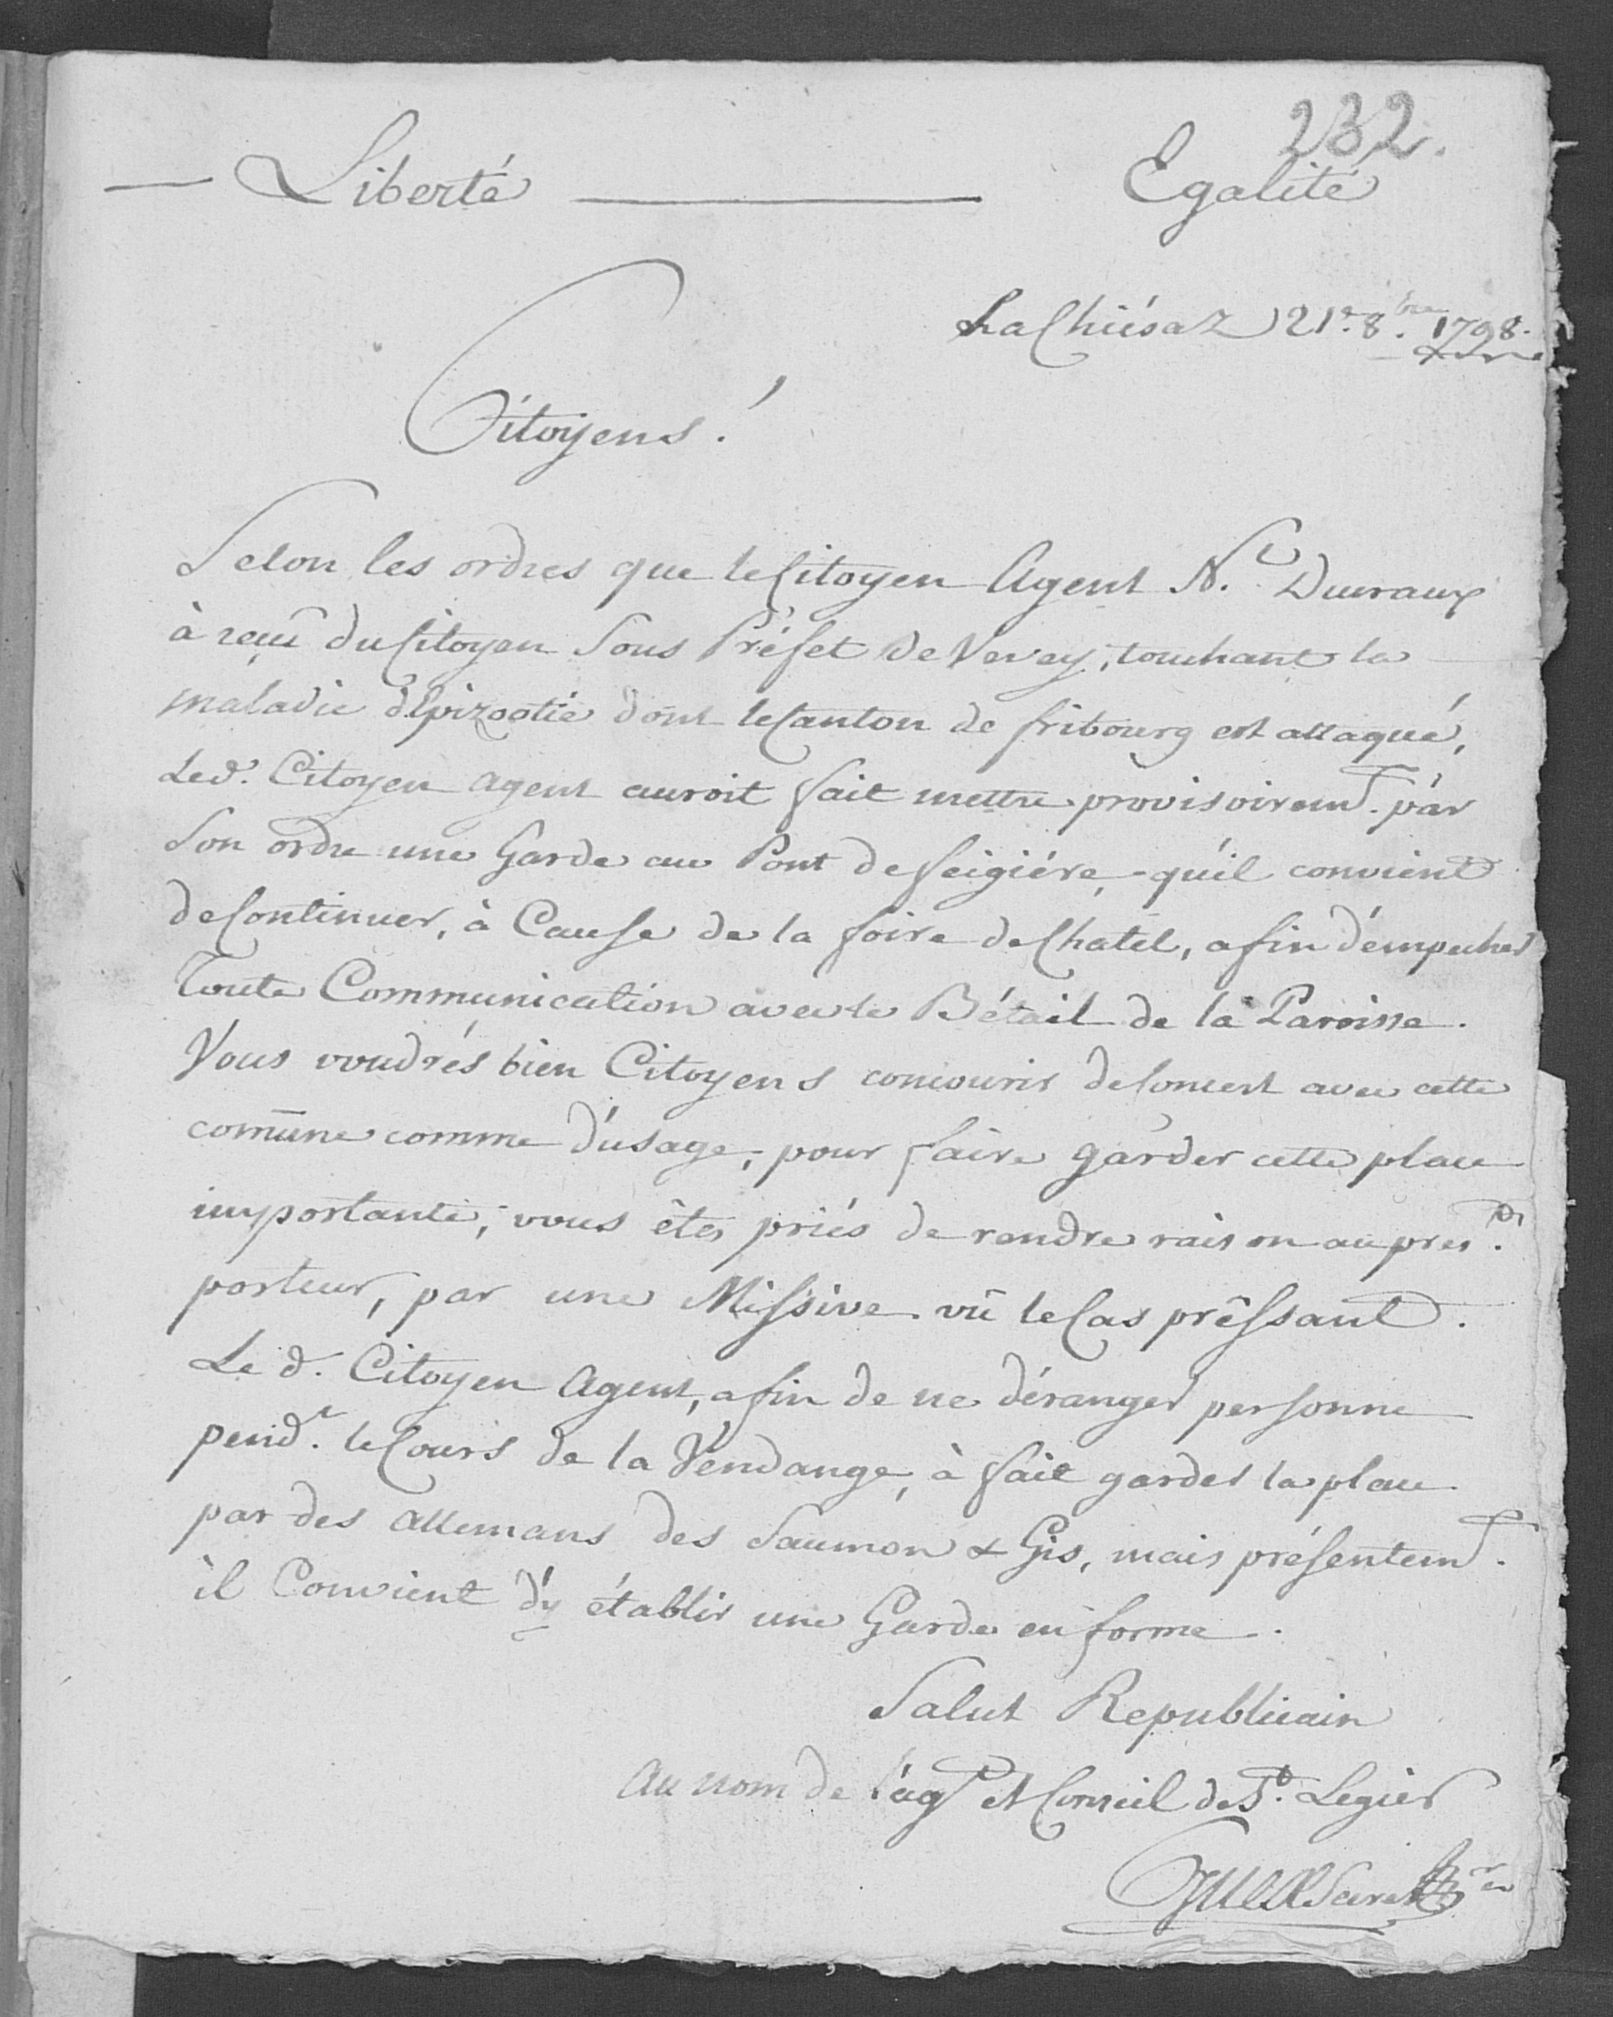 232.
Liberté Egalité
La Chiésaz 21.e 8.bre 1798.
Citoyens!
Selon les ordres que le Citoyen Agent N.l Ducraux
à reçu du Citoyen Sous Préfet de Vevey, touchant la
maladie d'Epizootie dont le Canton de fribourg est attaqué,
Led. Citoyen Agent auroit fait mettre provisoirem.t par
Son ordre une Garde au Pont de feigiére, qu'il convient
de Continuer, à Cause de la foire de Chatel, afin d'émpecher
Toute Communication avec le Bétail de la Paroisse.
Vous voudrés bien Citoyens concourir de Concert avec cette
comune comme d'usage, pour faire garder cette place
importante, vous êtes priés de rendre raison au pres.t
porteur, par une Missive vû le Cas prêssant.
Le d. Citoyen Agent, afin de ne déranger personne
pend.t le Cours de la Vendange, à fait garder la place
par des allemans des Saumon & Gis, mais présentem.t
il Convient d'y établir une Garde en forme.
Salut Republicain
Au nom de l'ag.t et Conseil de S.t Legier